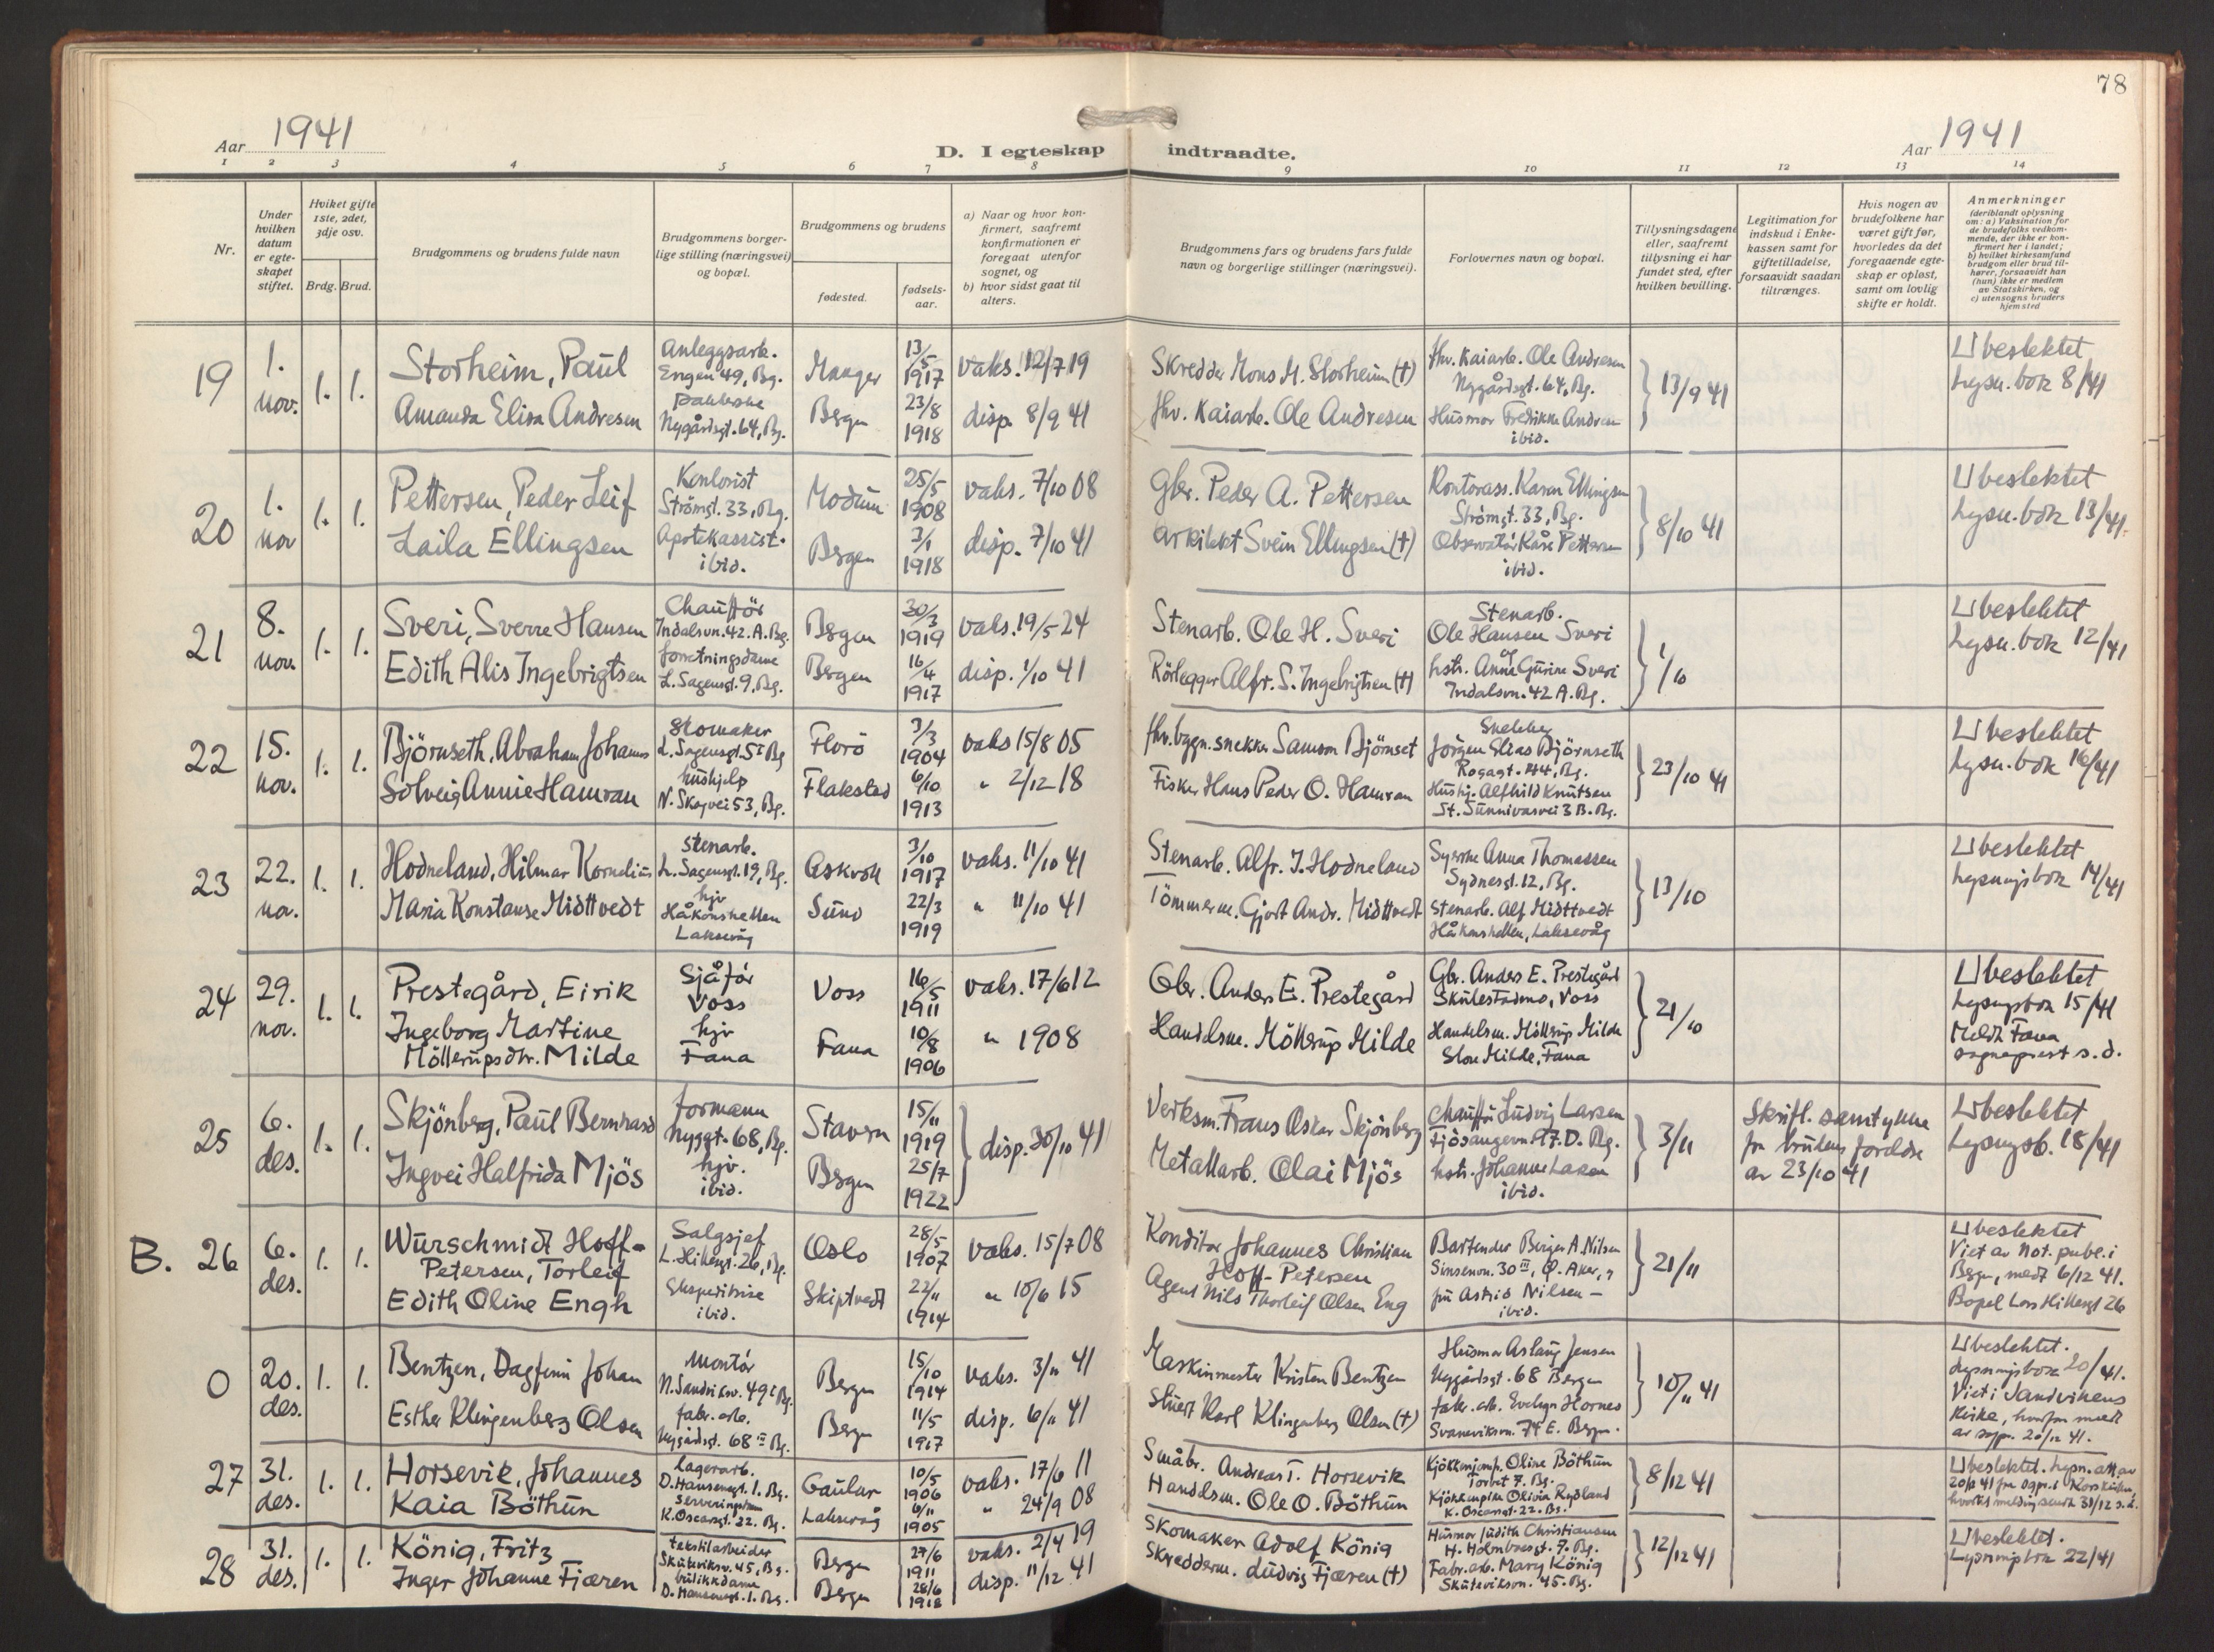 78
Aar 1941
D. I egteskap indtraadte.
Aar 1941
1 2 3 4 5 6 7 8 9 10 11 12 13 14
Nr.
Under hvilken datum er egteskapet stiftet.
Hviket gifte 1ste, 2det, 3dje osv.
Brdg. Brud.
Brudgommens og brudens fulde navn
Brudgommens borgerlige stilling (næringsvei) og bopæl.
Brudgommens og brudens
fødested.
fødselsaar.
a) Naar og hvor konfirmert, saafremt konfirmationen er foregaat utenfor sognet, og
b) hvor sidst gaat til alters.
Brudgommens fars og brudens fars fulde navn og borgerlige stillinger (næringsvei).
Forlovernes navn og bopæl.
Tillysningsdagene eller, saafremt tillysning ei har fundet sted, efter hvilken bevilling.
Legitimation for indskud i Enkekassen samt for giftetilladelse, forsaavidt saadan tiltrænges.
Hvis nogen av brudefolkene har været gift før, hvorledes da det foregaaende egteskap er opløst, samt om lovlig skifte er holdt.
Anmerkninger (deriblandt oplysning om: a) Vaksination for de brudefolks vedkommende, der ikke er konfirmert her i landet; b) hvilket kirkesamfund brudgom eller brud tilhører, forsaavidt han (hun) ikke er medlem av Statskirken, og c) utensogns bruders hjemsted
19
1. nov.
1. 1.
Storheim, Paul
Amanda Elisa Andresen
Anleggsarb.
Engen 49, Bg.
Nygårdsgt. 64, Bg.
Manger
Bergen
13/5 1917
23/8 1918
vaks. 12/7 19
disp. 8/9 41
Skredder Mons M. Storheim (†)
fhv. Kaiarb. Ole Andresen
fhv. Kaiarb. Ole Andresen
Nygårdsgt. 64, Bg.
Husmor Fredrikke Andresen
ibid.
13/9 41
Ubeslektet
Lysn. bok 8/41
20
1. nov
1. 1.
Pettersen, Peder Leif
Laila Ellingsen
Kontorist
Strömgt. 33, Bg.
Apotekassist.
ibid.
Modum
Bergen
25/5 1908
3/1 1918
vaks. 7/10 08
disp. 7/10 41
Gbr. Peder A. Pettersen
Arkitekt Svein Ellingsen (†)
Kontorass. Karen Ellingsen
Strömgt. 33, Bg.
Observatör Kåre Pettersen
ibid.
8/10 41
Ubeslektet
Lysn. bok 13/41.
21
8. nov.
1. 1.
Sveri, Sverre Hansen
Edith Alis Ingebrigtsen
Chaufför
Indalsvn. 42 A. Bg.
forretningsdame
L. Sagensgt. 9, Bg.
Bergen
Bergen
30/3 1919
16/4 1917
vaks. 19/5 24
disp. 1/10 41
Stenarb. Ole H. Sveri
Rörlegger Alfr. S. Ingebrigtsen (†)
Stenarb.
Ole Hansen Sveri
og
hstr. Anne Gurine Sveri
Indalsvn. 42 A. Bg.
1/10
Ubeslektet
Lysn. bok 12/41
22
15. nov.
1. 1.
Björnseth, Abraham Johannes
Solveig Annie Hamran
Skomaker
L. Sagensgt. 5 I Bg
hushjelp
N. Skogvei 53, Bg.
Florö
Flakstad
3/3 1904
6/10 1913
vaks 15/8 05
" 2/12 18
fhv. bygn. snekker Samson Björnset
Fisker Hans Peder O. Hamran
Snekker
Jörgen Elias Björnseth
Rogagt. 44, Bg.
Hushj. Alfhild Knutsen
St. Sunnivasvei 3 B. Bg.
23/10 41
Ubeslektet
Lysn. bok 16/41
23
22. nov.
1. 1.
Hodneland, Hilmar Kornelius
Maria Konstanse Midttvedt
Stenarb.
L. Sagensgt. 19, Bg.
hjv
Håkonshellen
Laksevåg
Askvoll
Sund
3/10 1917
22/3 1919
vaks. 11/10 41
" 11/10 41
Stenarb. Alfr. J. Hodneland
Tömmerm. Gjert Andr. Midttvedt
Syerske Anna Thomassen
Sydnesgt. 12, Bg.
Stenarb. Alf Midttvedt
Håkonshellen, Laksevåg
13/10
Ubeslektet
Lysningsbok 14/41
24
29. nov.
1. 1.
Prestegård, Eirik
Ingeborg Martine
Möllerupsdtr. Milde
Sjåför
Voss
hjv
Fana
Voss
Fana
16/5 1911
10/8 1906
vaks. 17/6 12
" 1908
Gbr. Anders E. Prestegård
Handelsm. Möllerup Milde
Gbr. Anders E. Prestegård
Skulestadmo, Voss
Handelsm. Möllerup Milde
Store Milde, Fana
21/10
Ubeslektet
Lysngsbok 15/41
Meldt Fana
sogneprest s.d.
25
6. des.
1. 1.
Skjönberg, Paul Bernhard
Ingvei Halfrida Mjös
formann
Nyggt. 68, Bg.
hjv.
ibid.
Stavern
Bergen
15/11 1919
25/7 1922
disp. 30/10 41
Verksm. Frans Oskar Skjönberg
Metallarb. Olai Mjös
Chaufför Ludvig Larsen
Fjösangervn. 17. D. Bg.
hstr. Johanne Larsen
ibid.
3/11
Skriftl. samtykke
fra brudens foreldre
av 23/10 41
Ubeslektet
Lysngsb. 18/41
B. 26
6. des.
1. 1.
Würschmidt Hoff-
Petersen, Torleif
Edith Oline Engh
Salgsjef
L. Hillesgt. 26, Bg.
Ekspeditrise
ibid.
Oslo
Skiptvedt
28/5 1907
22/11 1914
vaks. 15/7 08
" 10/6 15
Konditor Johannes Christian
Hoff-Petersen
Agent Nils Thorleif Olsen Eng
Bartender Birger A. Nilsen
Sinsenvn. 30 III, Ö. Aker, og
fru Astrid Nilsen –
ibid.
21/11
Ubeslektet
Viet av Not. publ. i
Bgn, medt 6/12 41.
Bopel Lars Hillesgt 26
0
20. des.
1. 1.
Bentzen, Dagfinn Johan
Esther Klingenberg Olsen
Montör
N. Sandviksv. 49 I Bg.
fabr. arb.
Nygårdsgt. 68 III Bg.
Bergen
Bergen
15/10 1914
11/5 1917
vaks. 3/11 41
disp. 6/11 41
Maskinmester Kristen Bentzen
Stuert Karl Klingenberg Olsen (†)
Husmor Aslaug Jensen
Nygårdsgt. 68 Bergen
fabr. arb. Evelyn Hornes
Svanevikvn. 74 E. Bergn.
10/11 41
Ubeslektet.
Lysningsbok 20/41.
Viet i Sandvikens
Kirke, hvorfra meldt
av sogpr. 20/12 41.
27
31. des.
1. 1.
Horsevik, Johannes
Kaia Böthun
Lagerarb.
D. Hansensgt. 1. Bg.
K. Oscarsgt. 22. Bg.
Gaular
Laksevåg
10/5 1906
6/11 1905
vaks. 17/6 11
" 24/9 08
Småbr. Andreas T. Horsevik
Handelsm. Ole O. Böthun
Kjökkenjomf. Oline Böthun
Torvet 7. Bg.
Kjökkenpike Olivia Rydland
K. Oscarsgt. 22. Bg.
8/12 41
Ubeslektet. Lysn. att av
20/12 41 fra sgpr. i Korskirken,
hvortil melding sendt 31/12 s.d.
28
31. des.
1. 1.
König, Fritz
Inger Johanne Fjæren
tekstilarbeider
Skuteviksv. 45, Bg.
butikkdame
D. Hansensgt. 1. Bg.
Bergen
Bergen
27/6 1911
28/6 1918
vaks. 2/4 19
disp. 11/12 41
Skomaker Adolf König
Skredderm. Ludvig Fjæren (†)
Husmor Judith Christiansen
H. Holmboesgt. 7. Bg.
Fabr. arb. Mary König
Skuteviksvn. 45. Bg.
12/12 41
Ubeslektet.
Lysningsbok 22/41